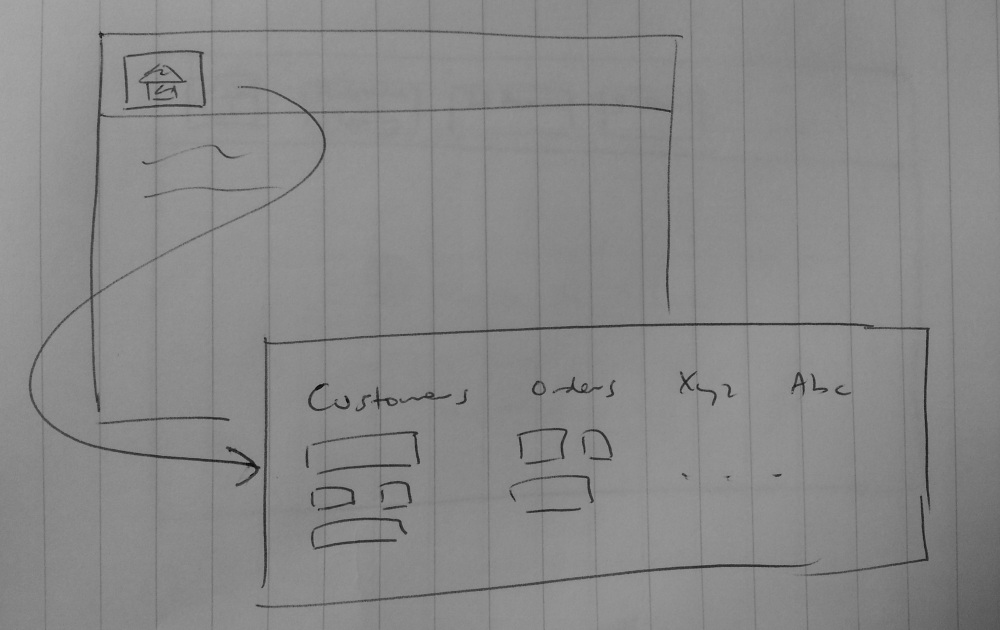 Customers Orders Xyz Abc
. . .